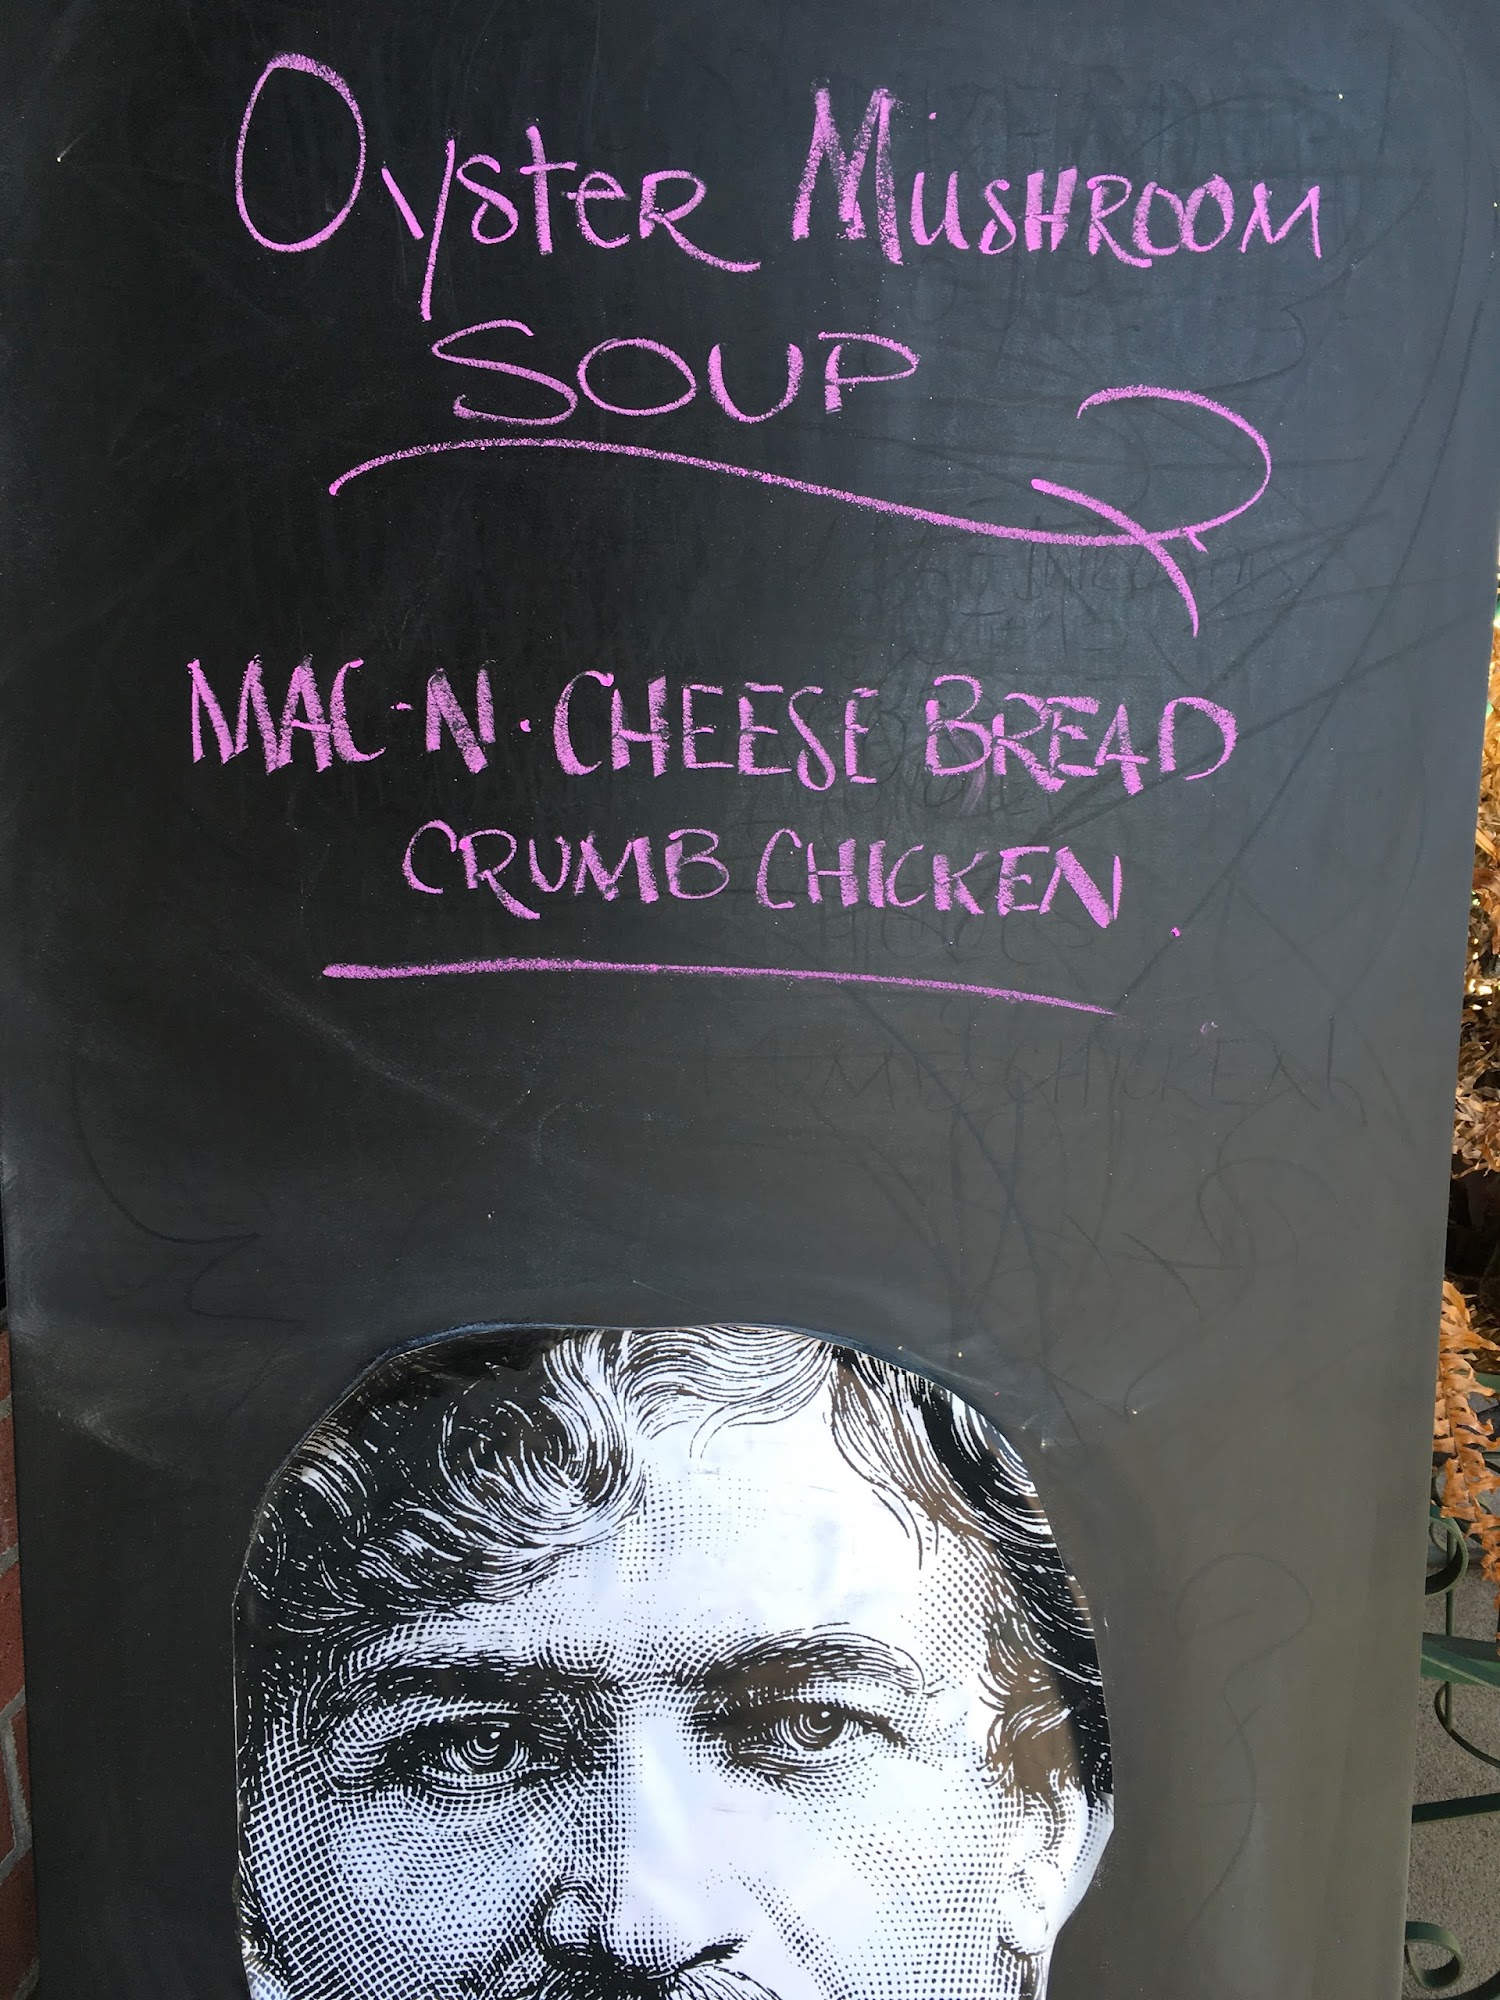 Oyster Mushroom
SOUP
MAC-N·CHEESE BREAD
CRUMB CHICKEN.